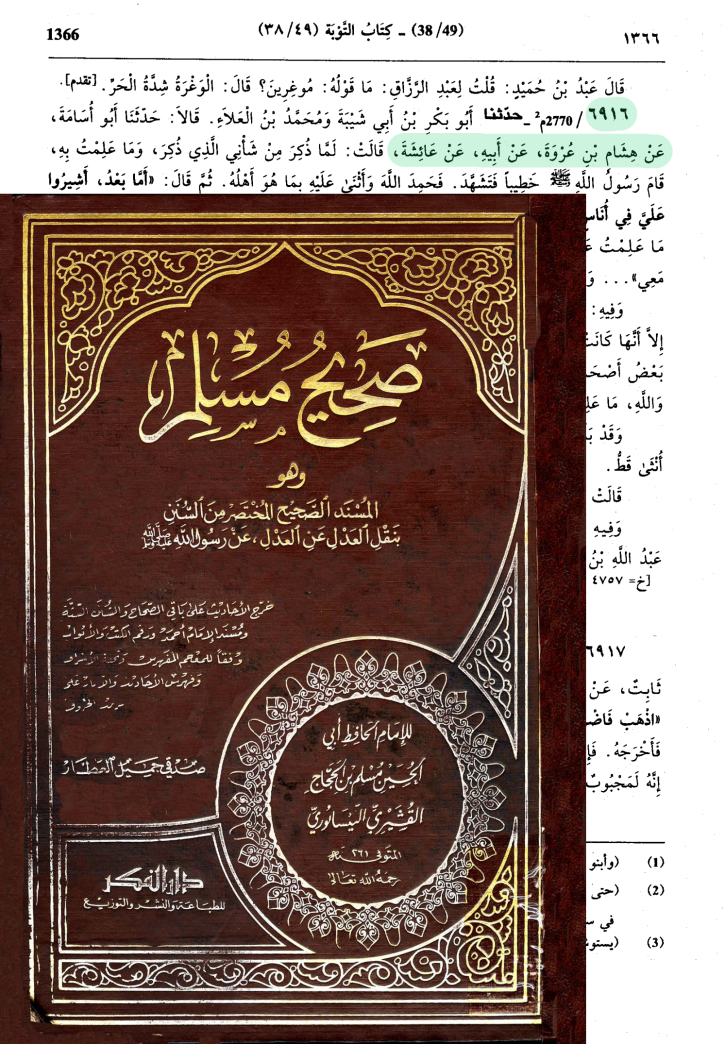 1366
(38/49) ـ كِتَابُ التَّوْبَة (٣٨/٤٩)
١٣٦٦
قَالَ عَبْدُ بْنُ حُمَيْدٍ: قُلْتُ لِعَبْدِ الرَّزَّاقِ: مَا قَوْلُهُ: مُوغِرِينَ؟ قَالَ: الْوَغْرَةُ شِدَّةُ الْحَرِّ. [تقدم].
٦٩١٦ /2770م² ـ حدّثنا أَبُو بَكْرِ بْنُ أَبِي شَيْبَةَ وَمُحَمَّدُ بْنُ الْعَلاَءِ. قَالاَ: حَدَّثَنَا أَبُو أُسَامَةَ،
عَنْ هِشَامِ بْنِ عُرْوَةَ، عَنْ أَبِيهِ، عَنْ عَائِشَةَ، قَالَتْ: لَمَّا ذُكِرَ مِنْ شَأْنِي الَّذِي ذُكِرَ، وَمَا عَلِمْتُ بِهِ،
قَامَ رَسُولُ اللَّهِ ﷺ خَطِيباً فَتَشَهَّدَ. فَحَمِدَ اللَّهَ وَأَثْنَىٰ عَلَيْهِ بِمَا هُوَ أَهْلُهُ. ثُمَّ قَالَ: «أَمَّا بَعْدُ، أَشِيرُوا
عَلَيَّ فِي أُنَاسٍ
مَا عَلِمْتُ
مَعِي». . .
وَفِيهِ:
إِلاَّ أَنَّهَا كَانَتْ
بَعْضُ
وَاللَّهِ، مَا
وَقَدْ
أُنْثَىٰ قَطُّ.
قَالَتْ
وَفِيهِ
عَبْدُ اللَّهِ بْنُ
[خ= ٤٧٥٧
٦٩١٧
ثَابِتٌ، عَنْ
«اذْهَبْ
فَأَخْرَجَهُ.
إِنَّهُ لَمَجْبُوبٌ
(1)
(2) (حتى
في
(3)
صَحِيحُ مُسْلِم
وهو
المُسْنَد الصَّحِيح المُخْتَصَر مِنَ السُّنَنِ
بنَقْلِ العَدْلِ عَنِ العَدْلِ، عَنْ رَسُولِ اللهِ ﷺ
خرج الأحاديث على باقي الصحاح والسنن الستة
ومسند الإمام أحمد ورقم الكتب والأبواب
وفقاً للمعجم المفهرس وتحفة الأشراف
صدقي جميل العطار
للإمام الحافظ أبي
الحسين مسلم بن الحجاج
القُشَيْريّ النَّيسَابُوريّ
المتوفى ٢٦١ هـ
رحمه الله تعالى
دار الفكر
للطباعة والنشر والتوزيع